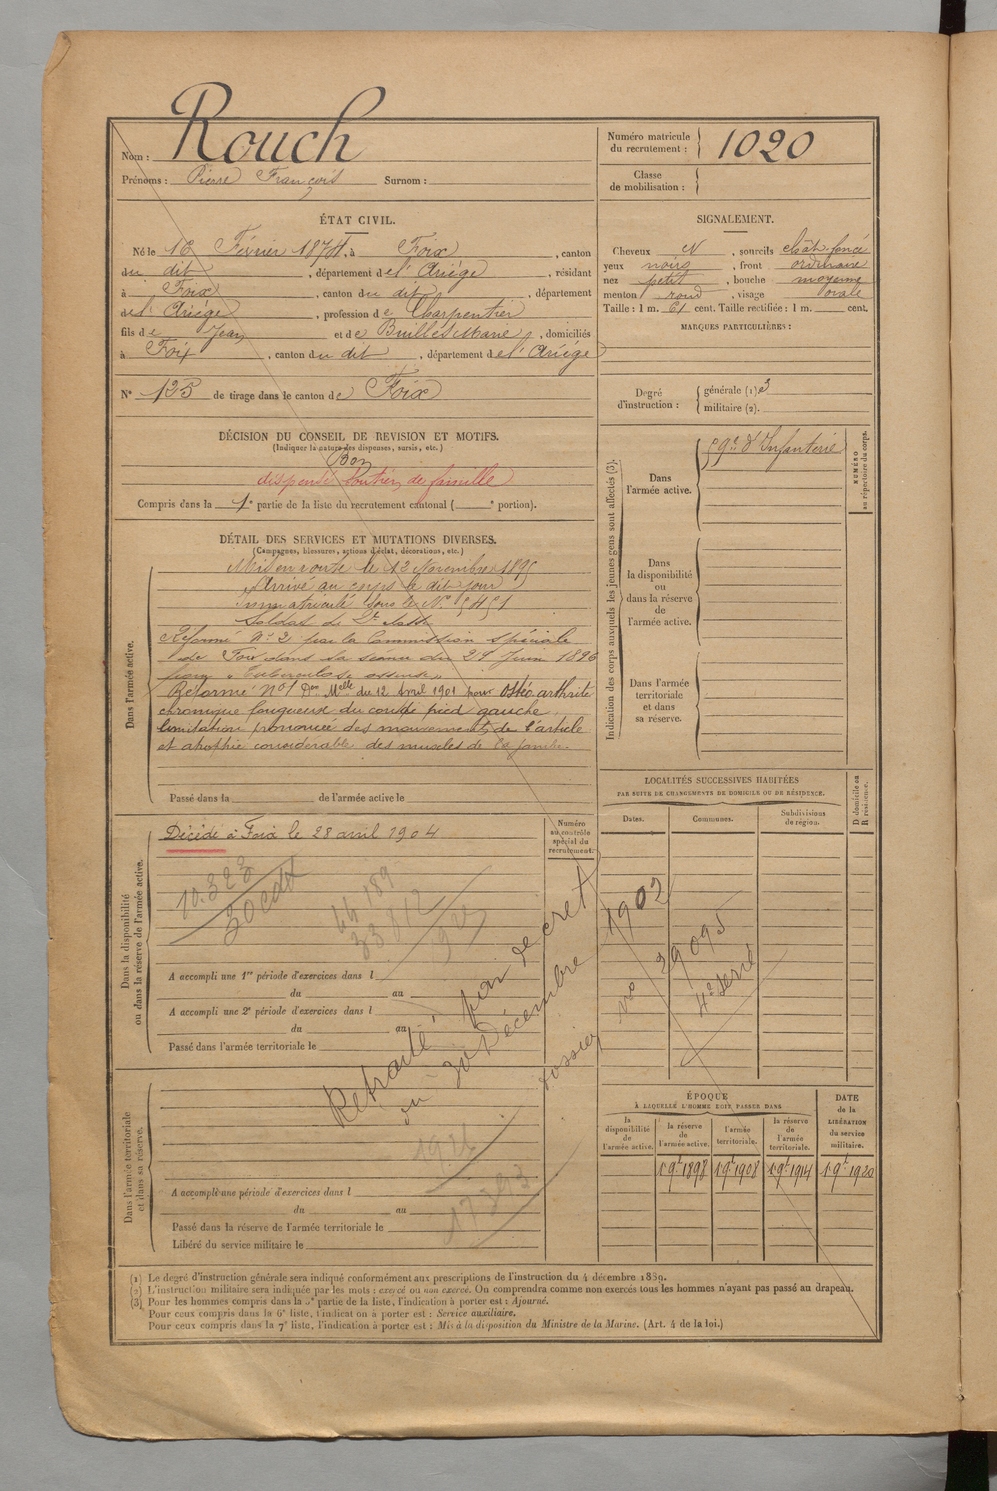 Rouch
Nom :
Prénoms : Pierre François Surnom :
Numéro matricule du recrutement : 1020
Classe de mobilisation :
ÉTAT CIVIL.
Né le 16 Février 1874, à Foix, canton
du dit, département de l'Ariège, résidant
à Foix, canton du dit, département
de l'Ariège, profession de Charpentier
fils de Jean et de Buillès Marie, domiciliés
à Foix, canton du dit, département de l'Ariège
N° 125 de tirage dans le canton de Foix
SIGNALEMENT.
Cheveux N, sourcils chât. foncé
yeux noirs, front ordinaire
nez petit, bouche moyenne
menton rond, visage ovale
Taille : 1 m. 61 cent. Taille rectifiée : 1 m. cent.
MARQUES PARTICULIÈRES :
Degré d'instruction : générale (1) 3
militaire (2).
DÉCISION DU CONSEIL DE REVISION ET MOTIFS.
(Indiquer la nature des dispenses, sursis, etc.)
Bon
dispensé soutien de famille
Compris dans la 1e partie de la liste du recrutement cantonal ( e portion).
DÉTAIL DES SERVICES ET MUTATIONS DIVERSES.
(Campagnes, blessures, actions d'éclat, décorations, etc.)
Dans l'armée active.
Mis en route le 12 Novembre 1895
Arrivé au corps le dit jour
Immatriculé sous le N° 5451
Soldat de 2e classe
Réformé N° 2 par la Commission spéciale
de Foix dans sa séance du 29 Juin 1896
pour « Tuberculose osseuse »
Réformé N° 1 Don Melle du 12 Avril 1901 pour Ostéo arthrite
chronique fongueuse du coude pied gauche
limitation prononcée des mouvements de l'article
et atrophie considérable des muscles de la jambe.
Passé dans la de l'armée active le
Indication des corps auxquels les jeunes gens sont affectés (3).
Dans l'armée active.
59e d'Infanterie
NUMÉRO au répertoire du corps.
Dans la disponibilité ou dans la réserve de l'armée active.
Dans l'armée territoriale et dans sa réserve.
LOCALITÉS SUCCESSIVES HABITÉES
PAR SUITE DE CHANGEMENTS DE DOMICILE OU DE RÉSIDENCE.
Dates.
Communes.
Subdivisions de région.
D. domicile ou R. résidence.
Dans la disponibilité ou dans la réserve de l'armée active.
Décédé à Foix le 28 avril 1904
Numéro au contrôle spécial du recrutement.
10.323
44 189
33 812
A accompli une 1re période d'exercices dans l
du au
A accompli une 2e période d'exercices dans l
du au
Passé dans l'armée territoriale le
Retraité par decret
du 30 Décembre 1902
dossier n° 29095
4e Serie
Dans l'armée territoriale et dans sa réserve.
A accompli une période d'exercices dans l
du au
Passé dans la réserve de l'armée territoriale le
Libéré du service militaire le
ÉPOQUE
À LAQUELLE L'HOMME DOIT PASSER DANS
la disponibilité de l'armée active.
la réserve de l'armée active.
l'armée territoriale.
la réserve de l'armée territoriale.
DATE de la LIBÉRATION du service militaire.
1 9e 1898
1 9e 1908
1 9e 1914
1 9e 1920
(1) Le degré d'instruction générale sera indiqué conformément aux prescriptions de l'instruction du 4 décembre 1889.
(2) L'instruction militaire sera indiquée par les mots : exercé ou non exercé. On comprendra comme non exercés tous les hommes n'ayant pas passé au drapeau.
(3) Pour les hommes compris dans la 5e partie de la liste, l'indication à porter est : Ajourné.
Pour ceux compris dans la 6e liste, l'indication à porter est : Service auxiliaire.
Pour ceux compris dans la 7e liste, l'indication à porter est : Mis à la disposition du Ministre de la Marine. (Art. 4 de la loi.)